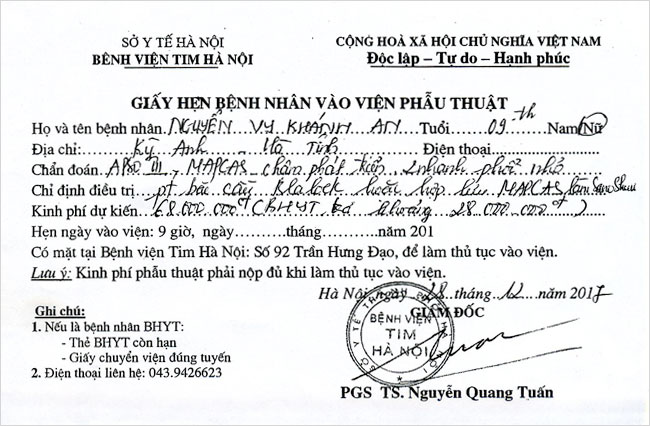 SỞ Y TẾ HÀ NỘI
BỆNH VIỆN TIM HÀ NỘI
CỘNG HOÀ XÃ HỘI CHỦ NGHĨA VIỆT NAM
Độc lập – Tự do – Hạnh phúc
GIẤY HẸN BỆNH NHÂN VÀO VIỆN PHẪU THUẬT
Họ và tên bệnh nhân. NGUYỄN VY KHÁNH AN Tuổi 09 th Nam/Nữ
Địa chỉ: Kỳ Anh - Hà Tĩnh Điện thoại
Chẩn đoán: APSO III - MAPCAS - chậm phát 2 nhánh phổi nhỏ
Chỉ định điều trị pt bắc cầu MAPCAS làm
Kinh phí dự kiến 68.000.000đ (BHYT khoảng 28.000.000đ)
Hẹn ngày vào viện: 9 giờ, ngày..........tháng..............năm 201
Có mặt tại Bệnh viện Tim Hà Nội: Số 92 Trần Hưng Đạo, để làm thủ tục vào viện.
Lưu ý: Kinh phí phẫu thuật phải nộp đủ khi làm thủ tục vào viện.
Hà Nội, ngày 28 tháng 12 năm 2017
GIÁM ĐỐC
SỞ Y TẾ T.P HÀ NỘI
BỆNH VIỆN
TIM
HÀ NỘI
PGS TS. Nguyễn Quang Tuấn
Ghi chú:
1. Nếu là bệnh nhân BHYT:
- Thẻ BHYT còn hạn
- Giấy chuyển viện đúng tuyến
2. Điện thoại liên hệ: 043.9426623